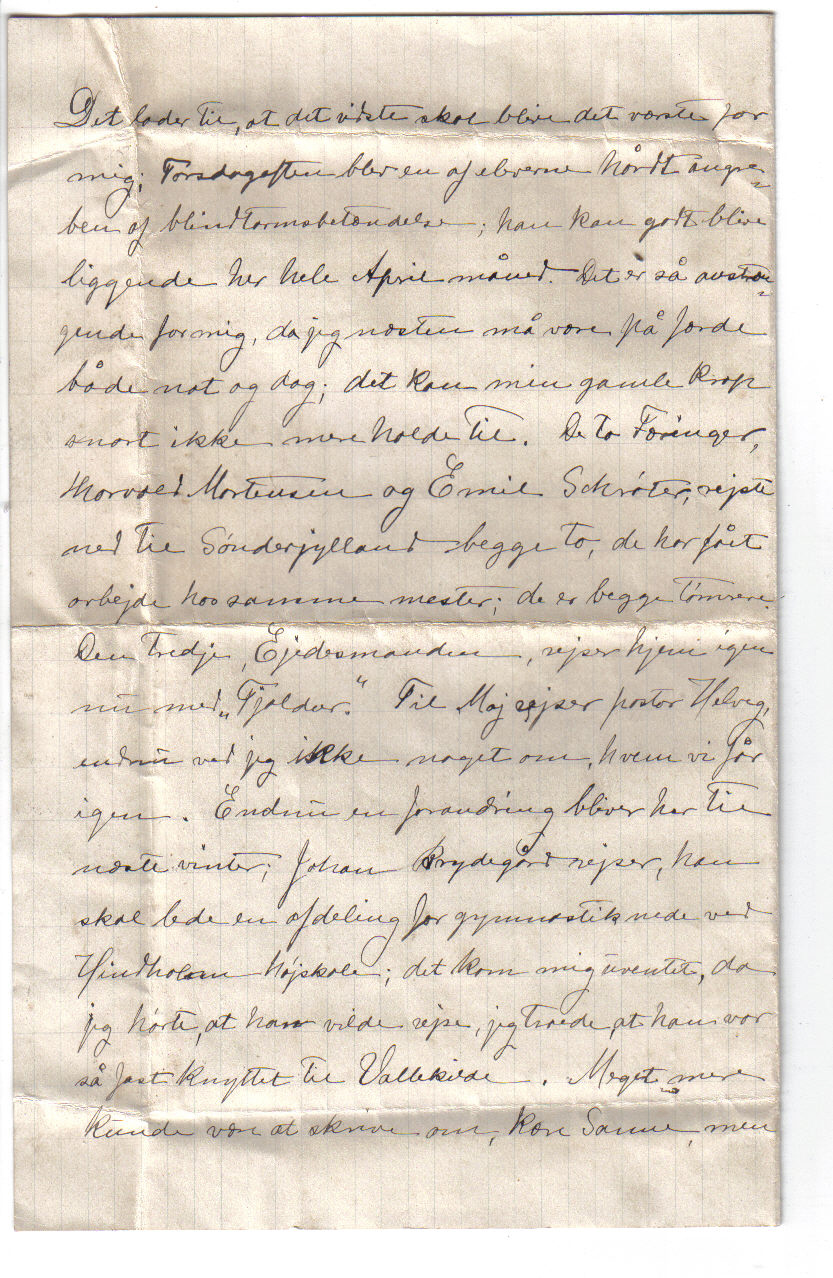 Det lader til, at det sidste skal blive det værste for
mig; Torsdagaften blev en af eleverne hårdt angre-
ben af blindtarmsbetændelse; han kan godt blive
liggende her hele April måned. Det er så anstræn-
gende for mig, da jeg næsten må være på færde
både nat og dag; det kan min gamle krop
snart ikke mere holde til. De to Færinger,
Thorvald Mortensen og Emil Schrøter, rejste
ned til Sønderjylland begge to, de har fået
arbejde hos samme mester; de er begge tømrere.
Den tredje, Ejdesmanden, rejser hjem igen
nu med „Tjaldur.“ Til Maj rejser pastor Helveg,
endnu ved jeg ikke noget om, hvem vi får
igen. Endnu en forandring bliver her til
næste vinter; Johan Brydegård rejser, han
skal lede en afdeling for gymnastik nede ved
Hindholm højskole; det kom mig uventet, da
jeg hørte, at han vilde rejse, jeg troede, at han var
så fast knyttet til Vallekilde. Meget mere
kunde være at skrive om, kære Sanne, men